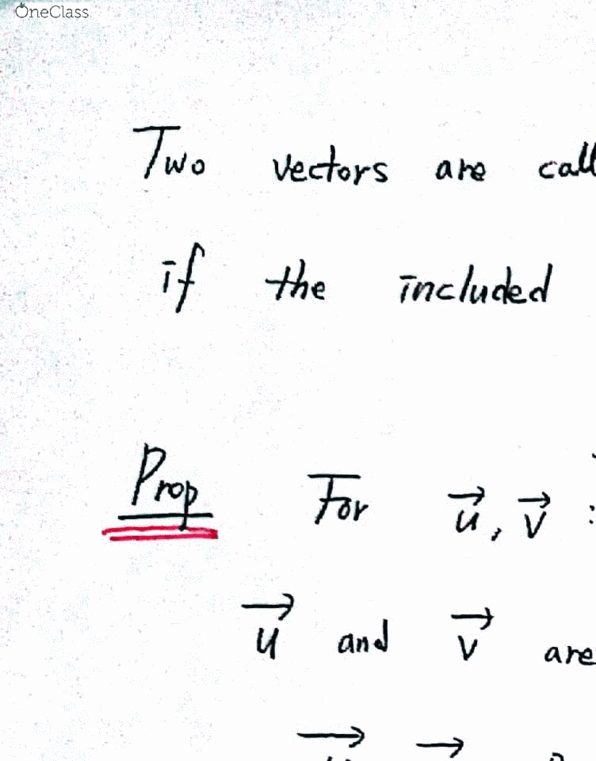 OneClass
Two vectors are call
if the included
Prop For u⃗, v⃗ :
u⃗ and v⃗ are